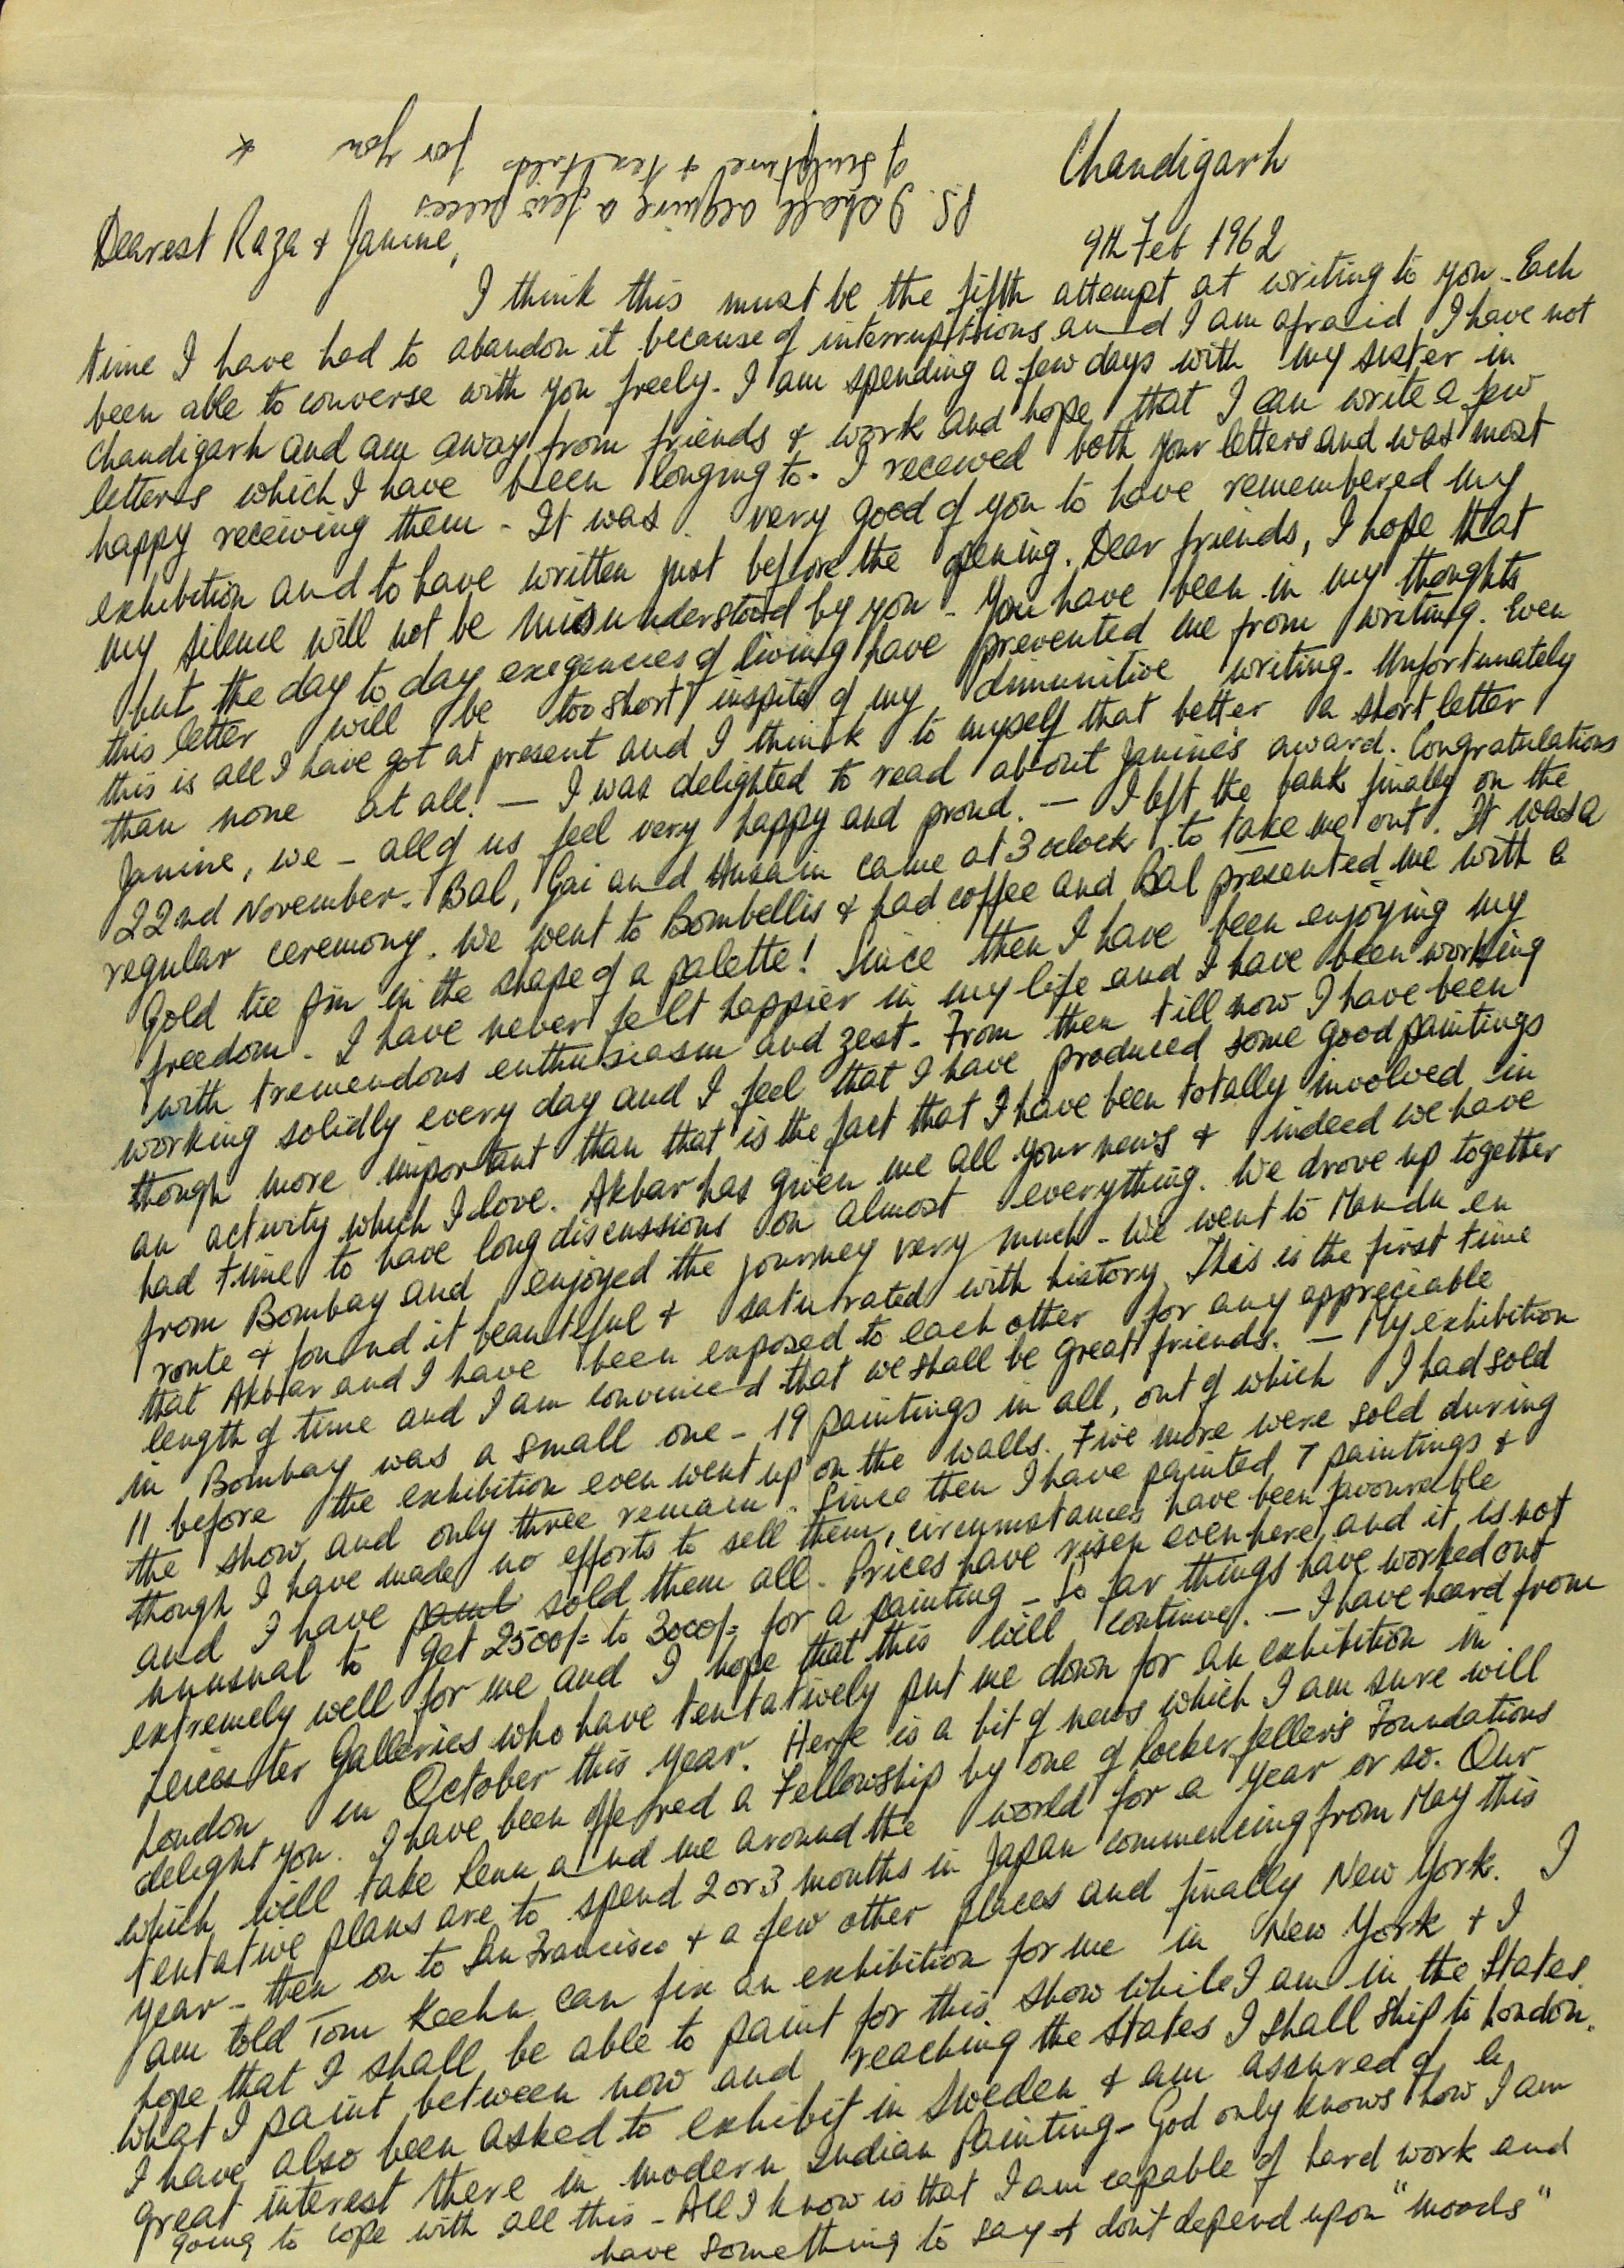 Chandigarh
9th Feb 1962
P.S. I shall acquire a few pieces
of sculpture & textiles for you *
Dearest Raza & Janine,
I think this must be the fifth attempt at writing to you. Each
time I have had to abandon it because of interruptions and I am afraid, I have not
been able to converse with you freely. I am spending a few days with my sister in
Chandigarh and am away from friends & work and hope that I can write a few
letters which I have been longing to. I received both your letters and was most
happy receiving them - It was very good of you to have remembered my
exhibition and to have written just before the opening. Dear friends, I hope that
my silence will not be misunderstood by you - You have been in my thoughts
but the day to day exegencies of living have prevented me from writing. Even
this letter will be too short inspite of my dimunitive writing - Unfortunately
this is all I have got at present and I think to myself that better a short letter
than none at all! — I was delighted to read about Janine's award. Congratulations
Janine, we - all of us feel very happy and proud. — I left the bank finally on the
22nd November. Bal, Gai and Husain came at 3 oclock to take me out. It was a
regular ceremony. We went to Bombellis & had coffee and Bal presented me with a
Gold tie pin in the shape of a palette! Since then I have been enjoying my
freedom - I have never felt happier in my life and I have been working
with tremendous enthusiasm and zest - From then till now I have been
working solidly every day and I feel that I have produced some good paintings
though more important than that is the fact that I have been totally involved in
an activity which I love. Akbar has given me all your news & indeed we have
had time to have long discussions on almost everything. We drove up together
from Bombay and enjoyed the journey very much - We went to Mandu en
route & found it beautiful & saturated with history. This is the first time
that Akbar and I have been exposed to each other for any appreciable
length of time and I am convinced that we shall be great friends. — My exhibition
in Bombay was a small one - 19 paintings in all, out of which I had sold
11 before the exhibition even went up on the walls. Five more were sold during
the show and only three remain. Since then I have painted 7 paintings &
though I have made no efforts to sell them, circumstances have been favourable
and I have paint sold them all - Prices have risen even here and it is not
unusual to get 2500/= to 3000/= for a painting - So far things have worked out
extremely well for me and I hope that this will continue. — I have heard from
Leicester Galleries who have tentatively put me down for an exhibition in
London in October this year. Here is a bit of news which I am sure will
delight you. I have been offered a Fellowship by one of Rockerfeller's Foundations
which will take Renu and me around the world for a year or so. Our
tentative plans are to spend 2 or 3 months in Japan commencing from May this
year - then on to San Francisco & a few other places and finally New York. I
am told Tom Keehn can fix an exhibition for me in New York & I
hope that I shall be able to paint for this show while I am in the States.
What I paint between now and reaching the States I shall ship to London.
I have also been asked to exhibit in Sweden & am assured of a
great interest there in modern Indian Painting - God only knows how I am
going to cope with all this - All I know is that I am capable of hard work and
have something to say & dont depend upon "moods"